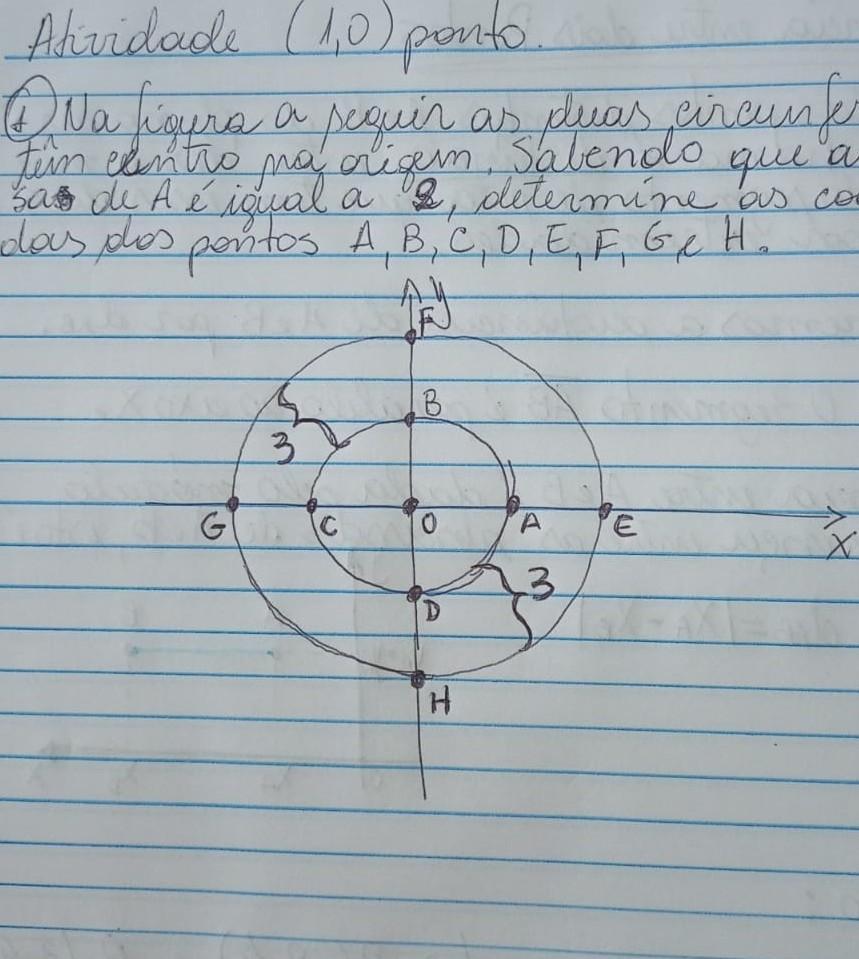 Atividade (1,0) ponto.
1 Na figura a seguir as duas circunfe
têm centro na origem. Sabendo que a
sa de A é igual a 2, determine as coo
das dos pontos A, B, C, D, E, F, G e H.
y
F
B
3
G C O A E
X
3
D
H